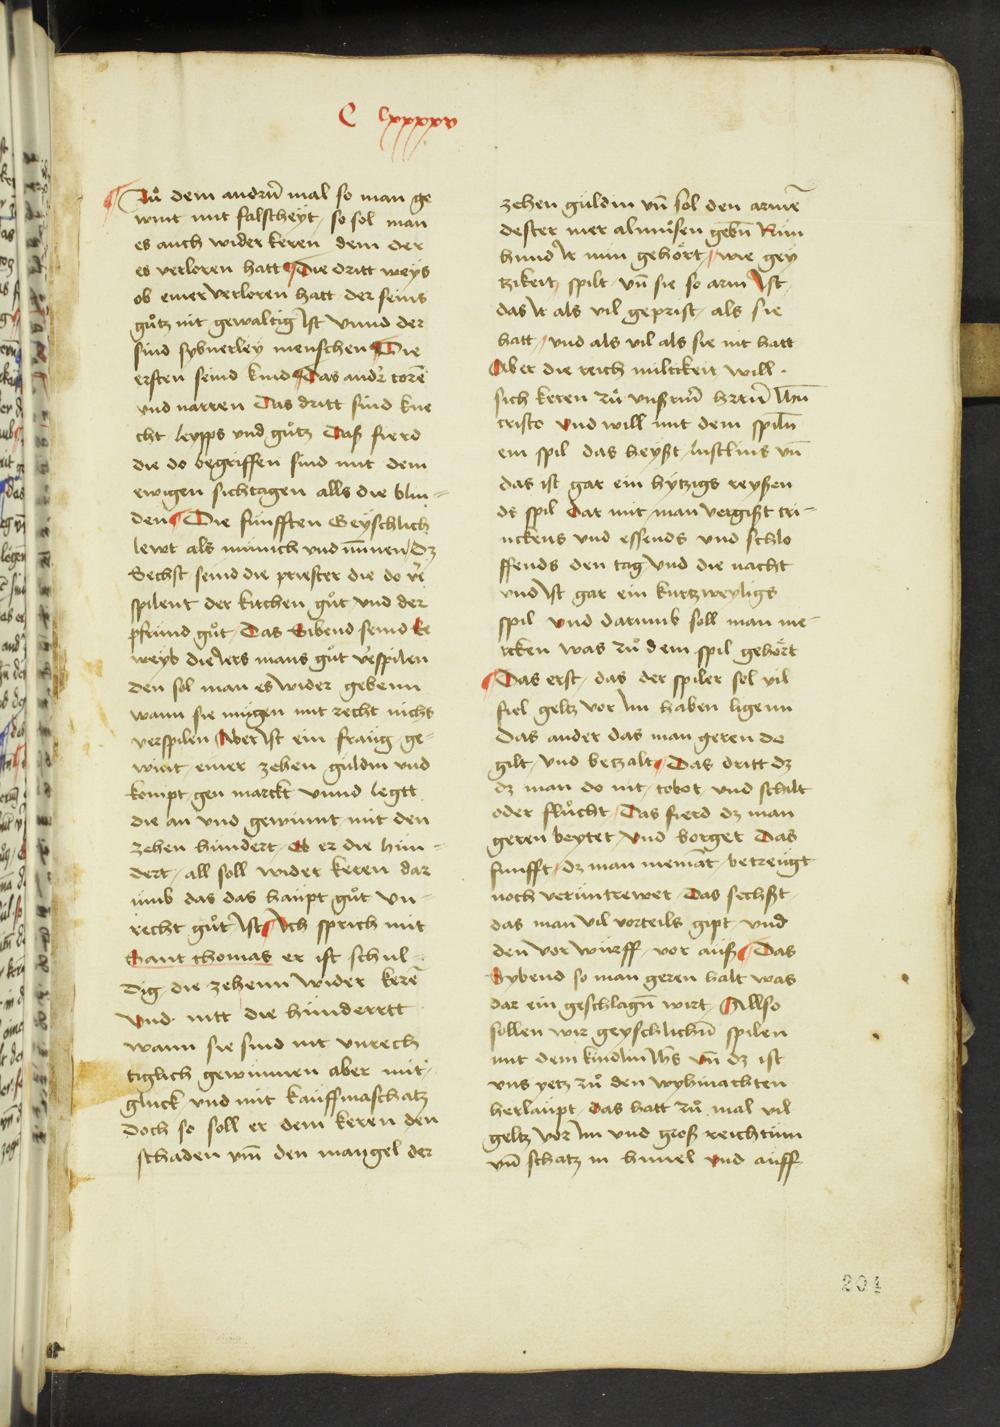 C lxxxxv
Zuͦ dem andern̄ mal so man ge
wint mit falscheyt / so sol man
es auch wider keren dem der
es verloren hatt Die dritt weys
ob einer verloren hatt der seins
guͦtz nit gewaltig Ist vnnd der
sind sybnerley menschen Die
ersten seind kind Das andr̄ torē
vnd narren Das dritt sind kne
cht leypps vnd guͦtz Daß fierd
die do begriffen sind mit dem
ewigen sichtagen alls die blin=
den Die fünfften Geyschlich
lewt als münich vnd nunnen / Dz
Sechst seind die priester die do v̄e
spilent der kirchen guͦt vnd der
pfruͤnd guͦt / Das Sibend seind Ee
weyb die Iers mans guͦt v̄espilen
den sol man es wider gebenn
wann sie mügen mit recht nichs
verspilen Aber Ist ein fraüg / ge=
wint / einer zehen guldin vnd
kompt gen marckt vnnd legtt
die an vnd gewinnt mit den
zehen hündert / Ob er die hün=
dert / all soll wider keren dar
ümb das das haupt guͦt vn=
recht guͦt Ist Ich sprich mit
Sant thomas er ist schul=
dig / die zehenn wider kerē
Vnd nitt die hünderett
wann sie sind nit vnrech
tiglich gewünnen aber mit
gluck / vnd mit kauffmaschatz
Doch so soll er dem keren den
schaden vnn̄ den mangel der
zehen guldin vn̄ sol den armē
dester mer almuͦsen gebn̄ Nun
hund Ir nun gehoͤrt / wie gey
tzikeit / spilt vn̄ sie so arm Ist /
das Ir als vil geprist / als sie
hatt / vnd als vil als sie nit hatt
Aber die reich miltikeit will ·
sich keren zuͦ vnßrm̄ hrrn̄ Ihū
cristo Vnd will mit dem spiln̄
ein spil das heyßt lustlins vn̄
das ist gar ein hytzigs reyßen
ds spil Dar mit / man vergißt tri=
nckens vnd essends vnd schlo
ffends den tag vnd die nacht
vnd Ist gar ein kurtzweyligs
spil vnd darumb soll man me=
rcken was zuͦ dem spil gehoͤrt
Das erst / das der spiler sol vil
fiel geltz vor Im haben ligenn
Das ander das man geren de
gilt / vnd bezalt Das dritt dz
dz man do nit / tobot vnd schilt
oder fluͦcht / Das fierd dz man
geren beytet / vnd borget Das
funfft / dz man niemāt / betreügt
noch veruntrewet Das sechßt
das man vil vorteils gipt / vnd
den vor würff / vor auß Das
Sybend so man geren halt was
dar ein geschlagn̄ wirt / Allso
sollen wir geyschlichū spilen
mit dem kindlin Ihs vn̄ dz ist
vns yetz zuͦ den wyhnachten
herlaüpt / das hatt zuͦ mal vil
geltz vor Im vnd groß reichtüm
vn̄ schatz in himel vnd auff
204